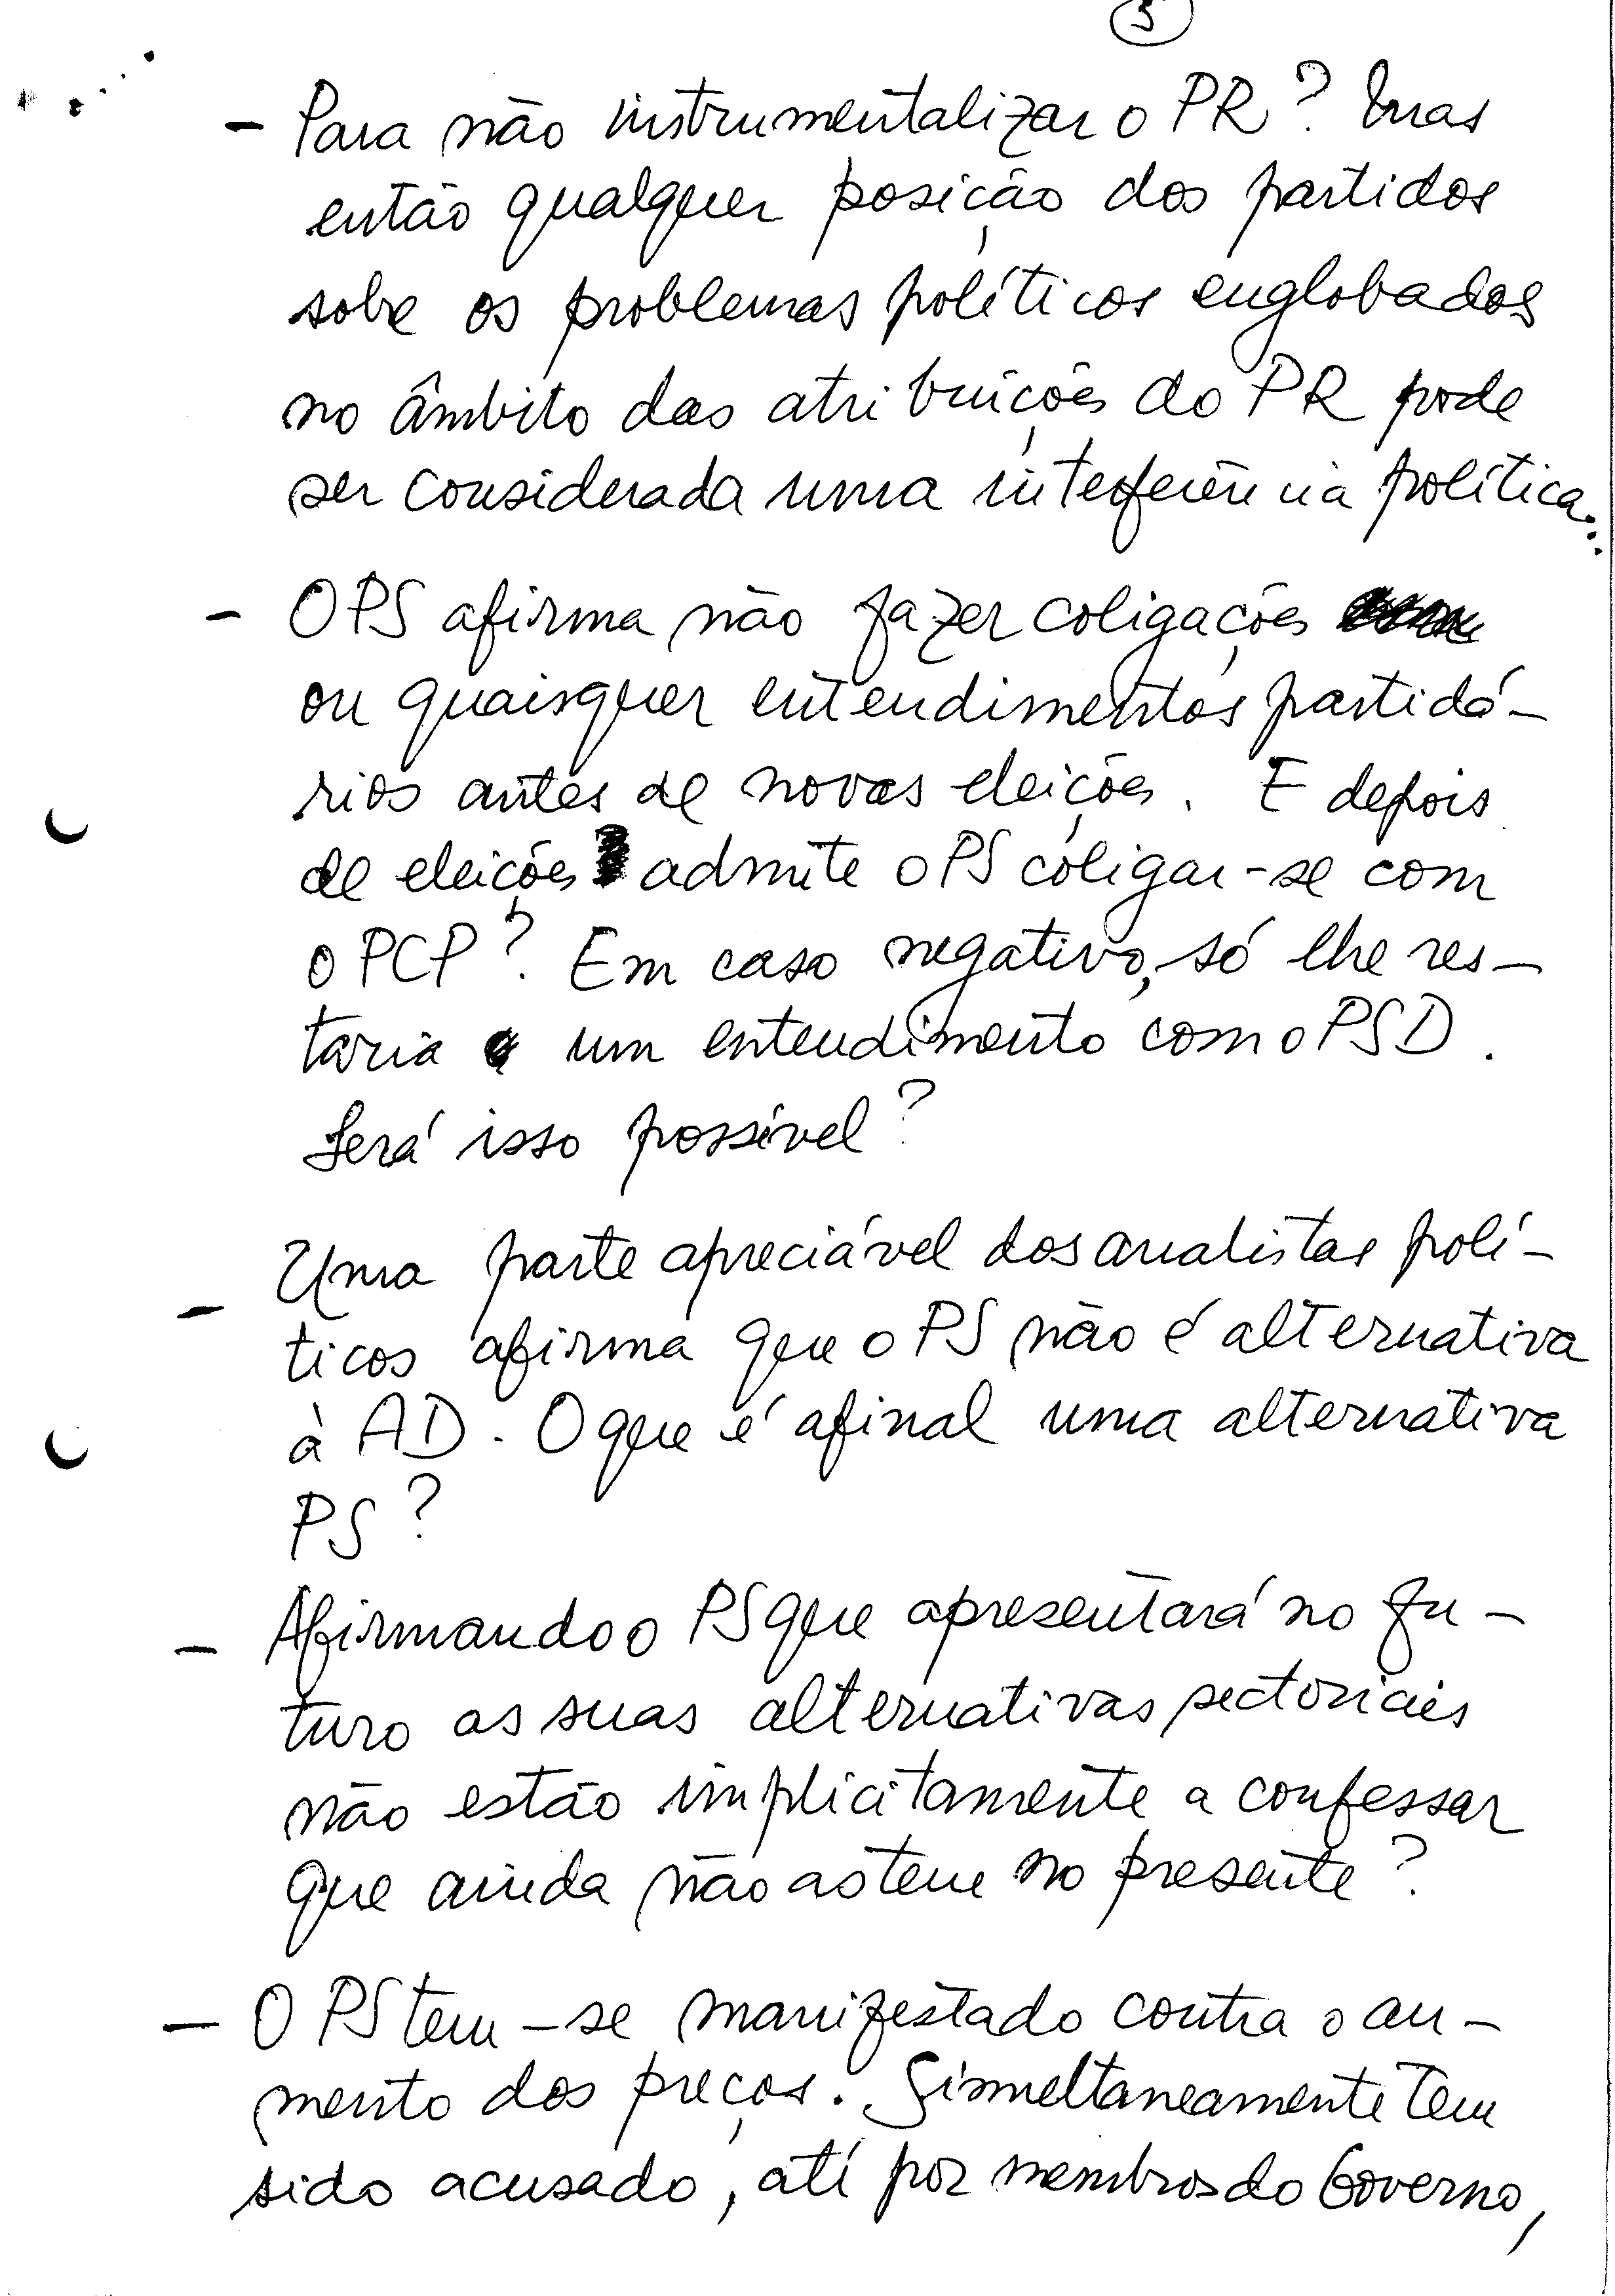 3
- Para não instrumentalizar o PR? mas
então qualquer posição dos partidos
sobre os problemas políticos englobados
no âmbito das atribuições do PR pode
ser considerada uma interferência política...
- O PS afirma não fazer coligações
ou quaisquer entendimentos partidá-
rios antes de novas eleições. E depois
de eleições admite o PS coligar-se com
o PCP? Em caso negativo, só lhe res-
taria um entendimento com o PSD.
Será isso possível?
- Uma parte apreciável dos analistas polí-
ticos afirma que o PS não é alternativa
à AD. O que é afinal uma alternativa
PS?
- Afirmando o PS que apresentará no fu-
turo as suas alternativas sectoriais
não estão implicitamente a confessar
que ainda não as tem no presente?
- O PS tem-se manifestado contra o au-
mento dos preços. Simultaneamente tem
sido acusado, até por membros do Governo,